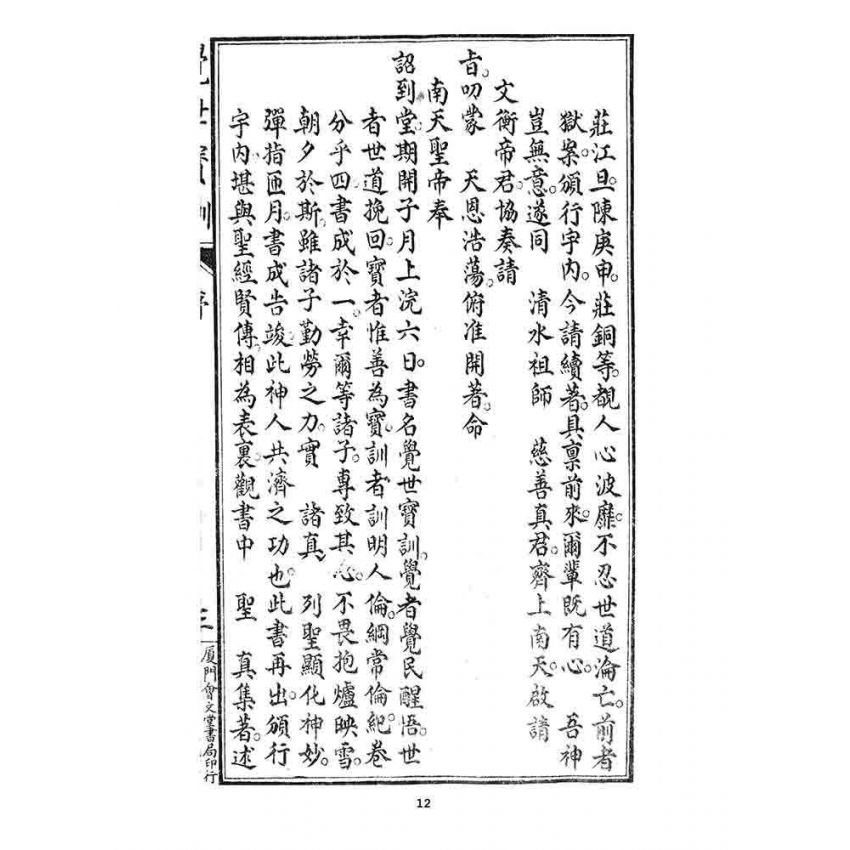 莊江旦陳庚申。莊銅等。覩人心波靡。不忍世道淪亡。前者
獄案頒行宇內。今請續著。具禀前來。爾輩既有心。 吾神
豈無意。遂同 清水祖師 慈善真君。齊上南天。啟請
文衡帝君。協奏請
旨。叨蒙 天恩浩蕩。俯准開著。命
南天聖帝奉
詔到堂。期開子月上浣六日。書名覺世寶訓。覺者覺民醒悟。世
者世道挽回。寶者惟善為寶。訓者訓明人倫。綱常倫紀。卷
分乎四。書成於一。幸爾等諸子。專致其心。不畏抱爐映雪。
朝夕於斯。雖諸子勤勞之力。實 諸真 列聖顯化神妙。
彈指匝月。書成告竣。此神人共濟之功也。此書再出。頒行
宇內。堪與聖經賢傳。相為表裏。觀書中 聖 真集著。述
覺世寶訓 序 三 厦門會文堂書局印行
12